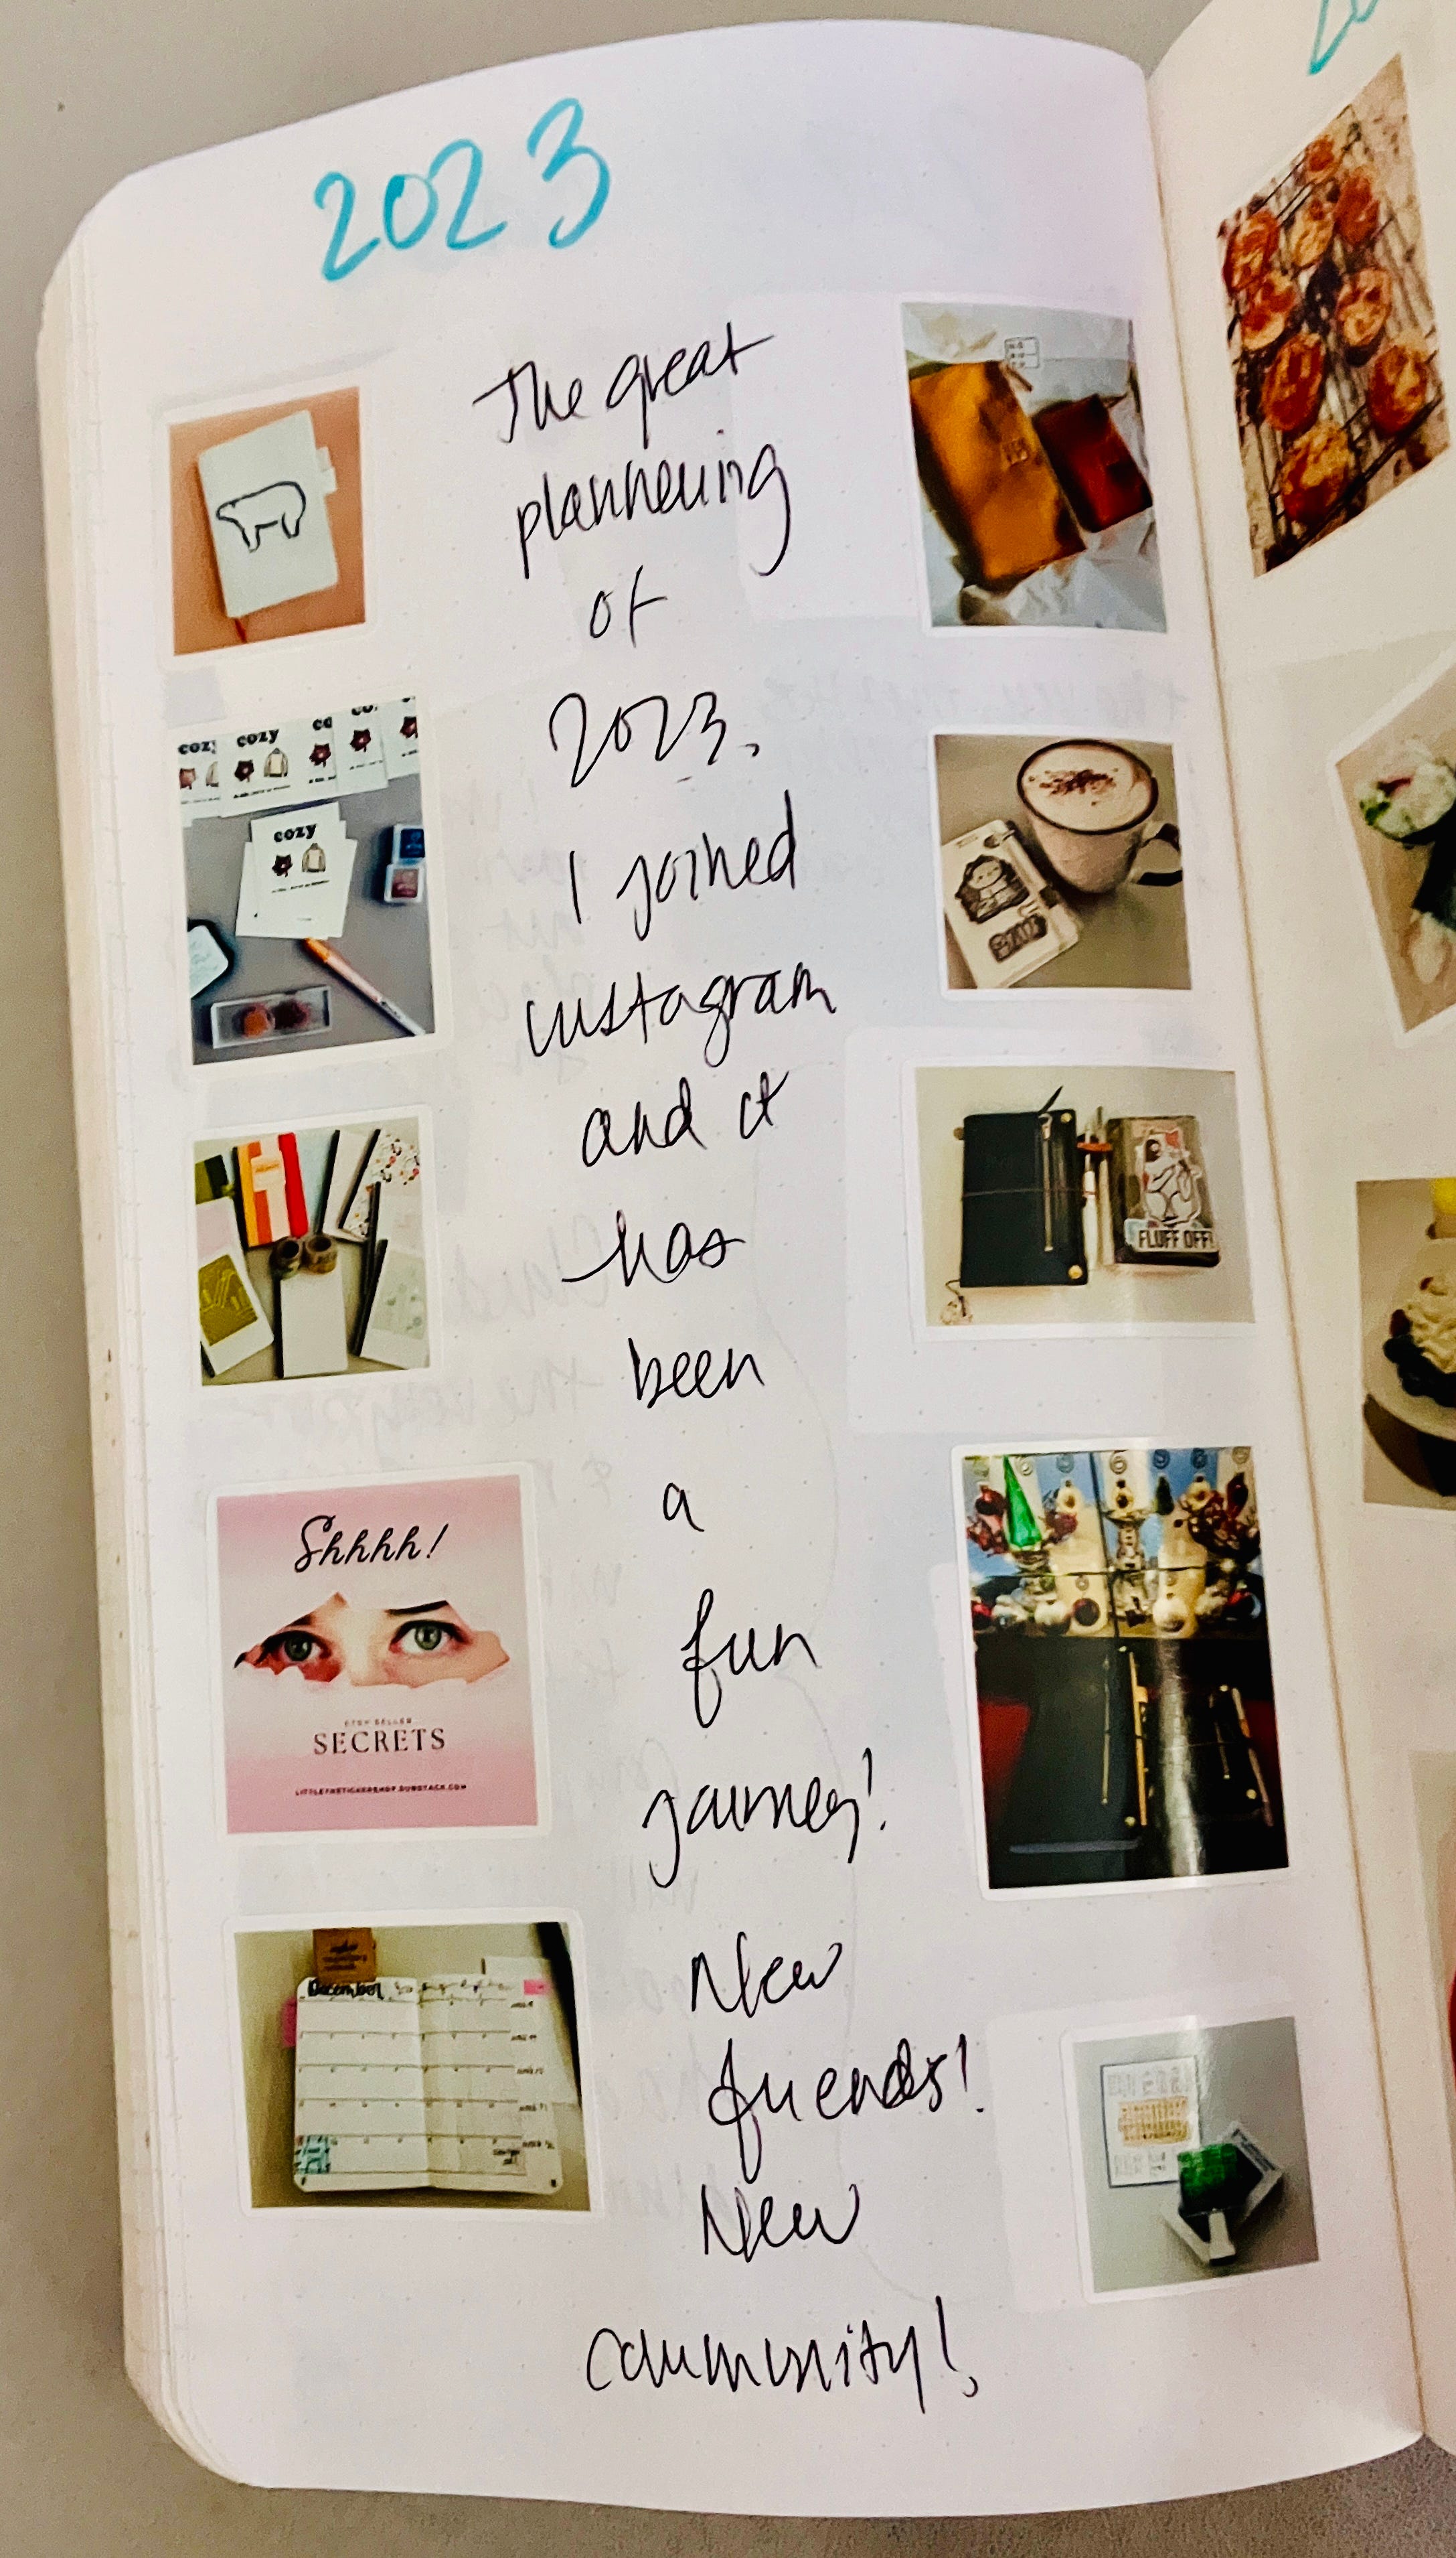 2023
The great
plannering
of
2023.
I joined
instagram
and it
has
been
a
fun
journey!
New
friends!
New
community!
cozy
cozy
cozy
Shhhh!
ETSY SELLER
SECRETS
LITTLEFINESTICKERSHOP.SUBSTACK.COM
December
FLUFF OFF!